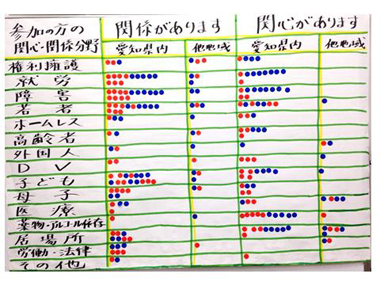 参加の方の
関心・関係分野
関係があります
関心があります
愛知県内
他地域
愛知県内
他地域
権利擁護
就労
障害
若者
ホームレス
高齢者
外国人
DV
子ども
母子
医療
薬物・アルコール依存
居場所
労働・法律
その他